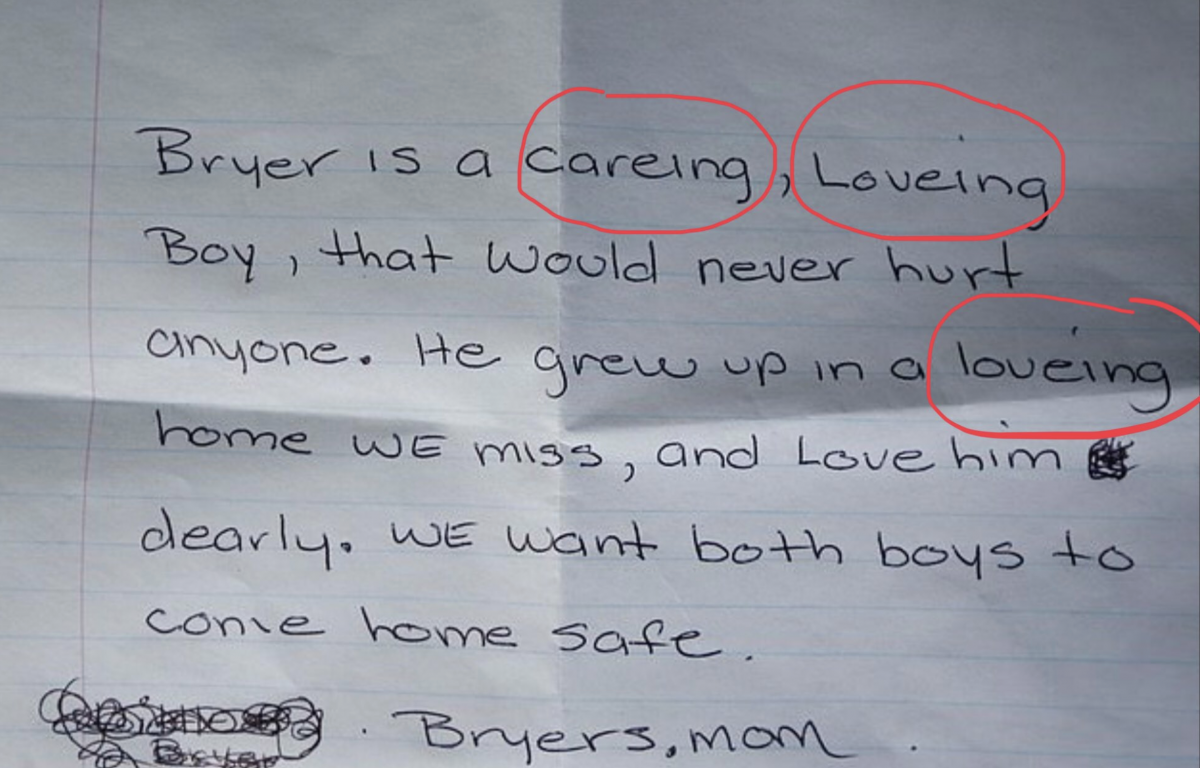 Bryer is a careing, Loveing
Boy, that would never hurt
anyone. He grew up in a loveing
home WE miss, and Love him
dearly. WE want both boys to
come home safe.
Bryers, mom.